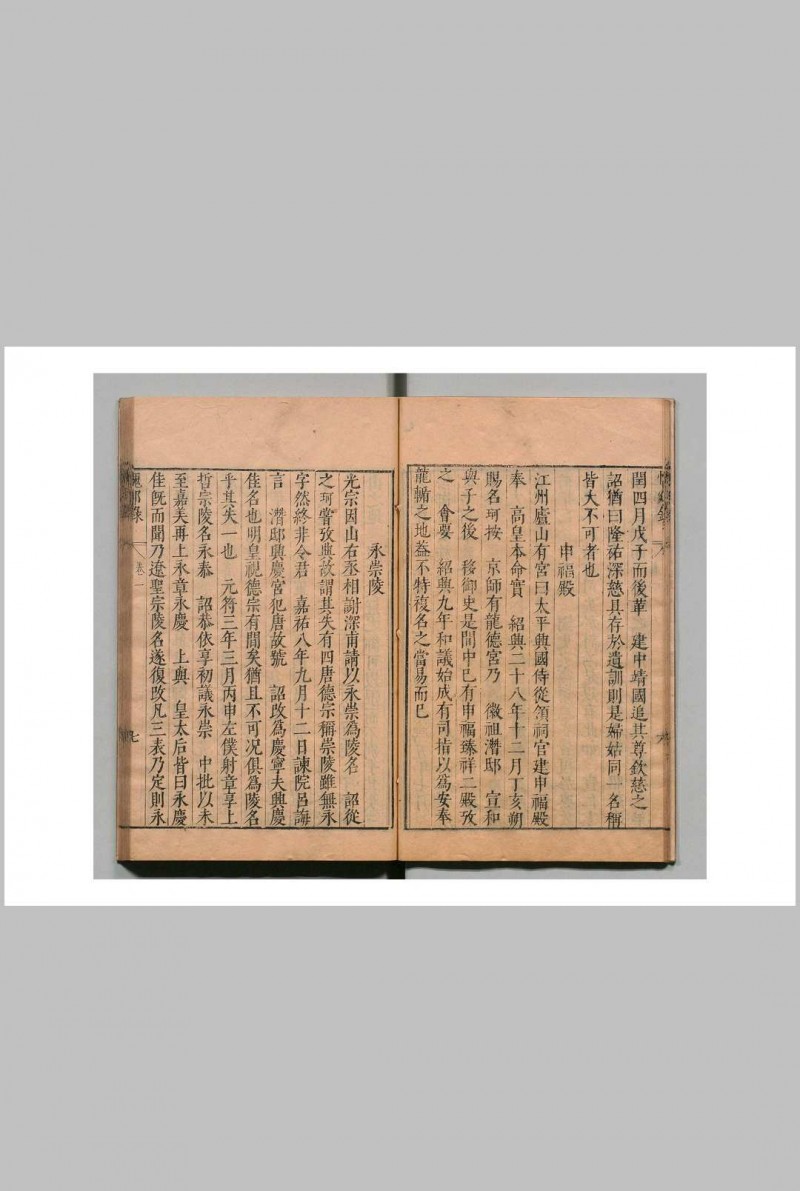 閏四月戊子而後華　建中靖國追其尊欽慈之
詔猶曰隆祐深慈具存於遺訓則是婦姑同一名稱
皆大不可者也
申福殿
江州廬山有宮曰太平興國侍從領祠官建申福殿
奉　高皇本命實　紹興二十八年十二月丁亥朔
賜名珂按　京師有龍德宮乃　徽祖潛邸　宣和
與子之後　移御史是間中已有申福臻祥二殿攷
之　會要　紹興九年和議始成有司措以為安奉
龍輴之地蓋不特複名之當易而已
永崇陵
光宗因山右丞相謝深甫請以永崇為陵名　詔從
之珂嘗攷典故謂其失有四唐德宗稱崇陵雖無永
字然終非令君　嘉祐八年九月十二日諫院呂誨
言　潛邸興慶宮犯唐故號　詔改為慶寧夫興慶
佳名也明皇視德宗有間矣猶且不可况俱為陵名
乎其失一也　元符三年三月丙申左僕射章享上
哲宗陵名永泰　詔恭依享初議永崇　中批以未
至嘉美再上永章永慶　上與　皇太后皆曰永慶
佳既而聞乃遼聖宗陵名遂復改凡三表乃定則永
愧郯錄
卷一
七